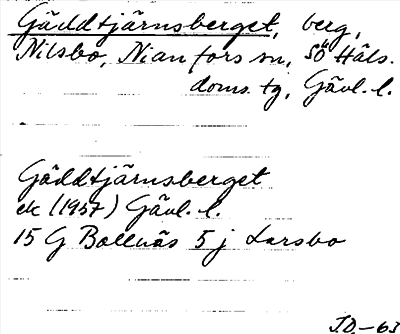 Gäddtjärnsberget, berg,
Nilsbo, Nianfors sn, Sö Häls.
doms. tg, Gävl. l.
Gäddtjärnsberget
ek (1957) Gävl. l.
15 G Bollnäs 5 j Larsbo
I.D.-63